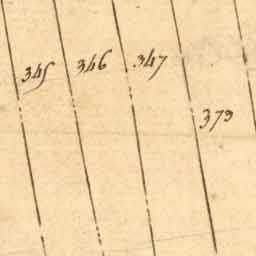 345
346
347
373